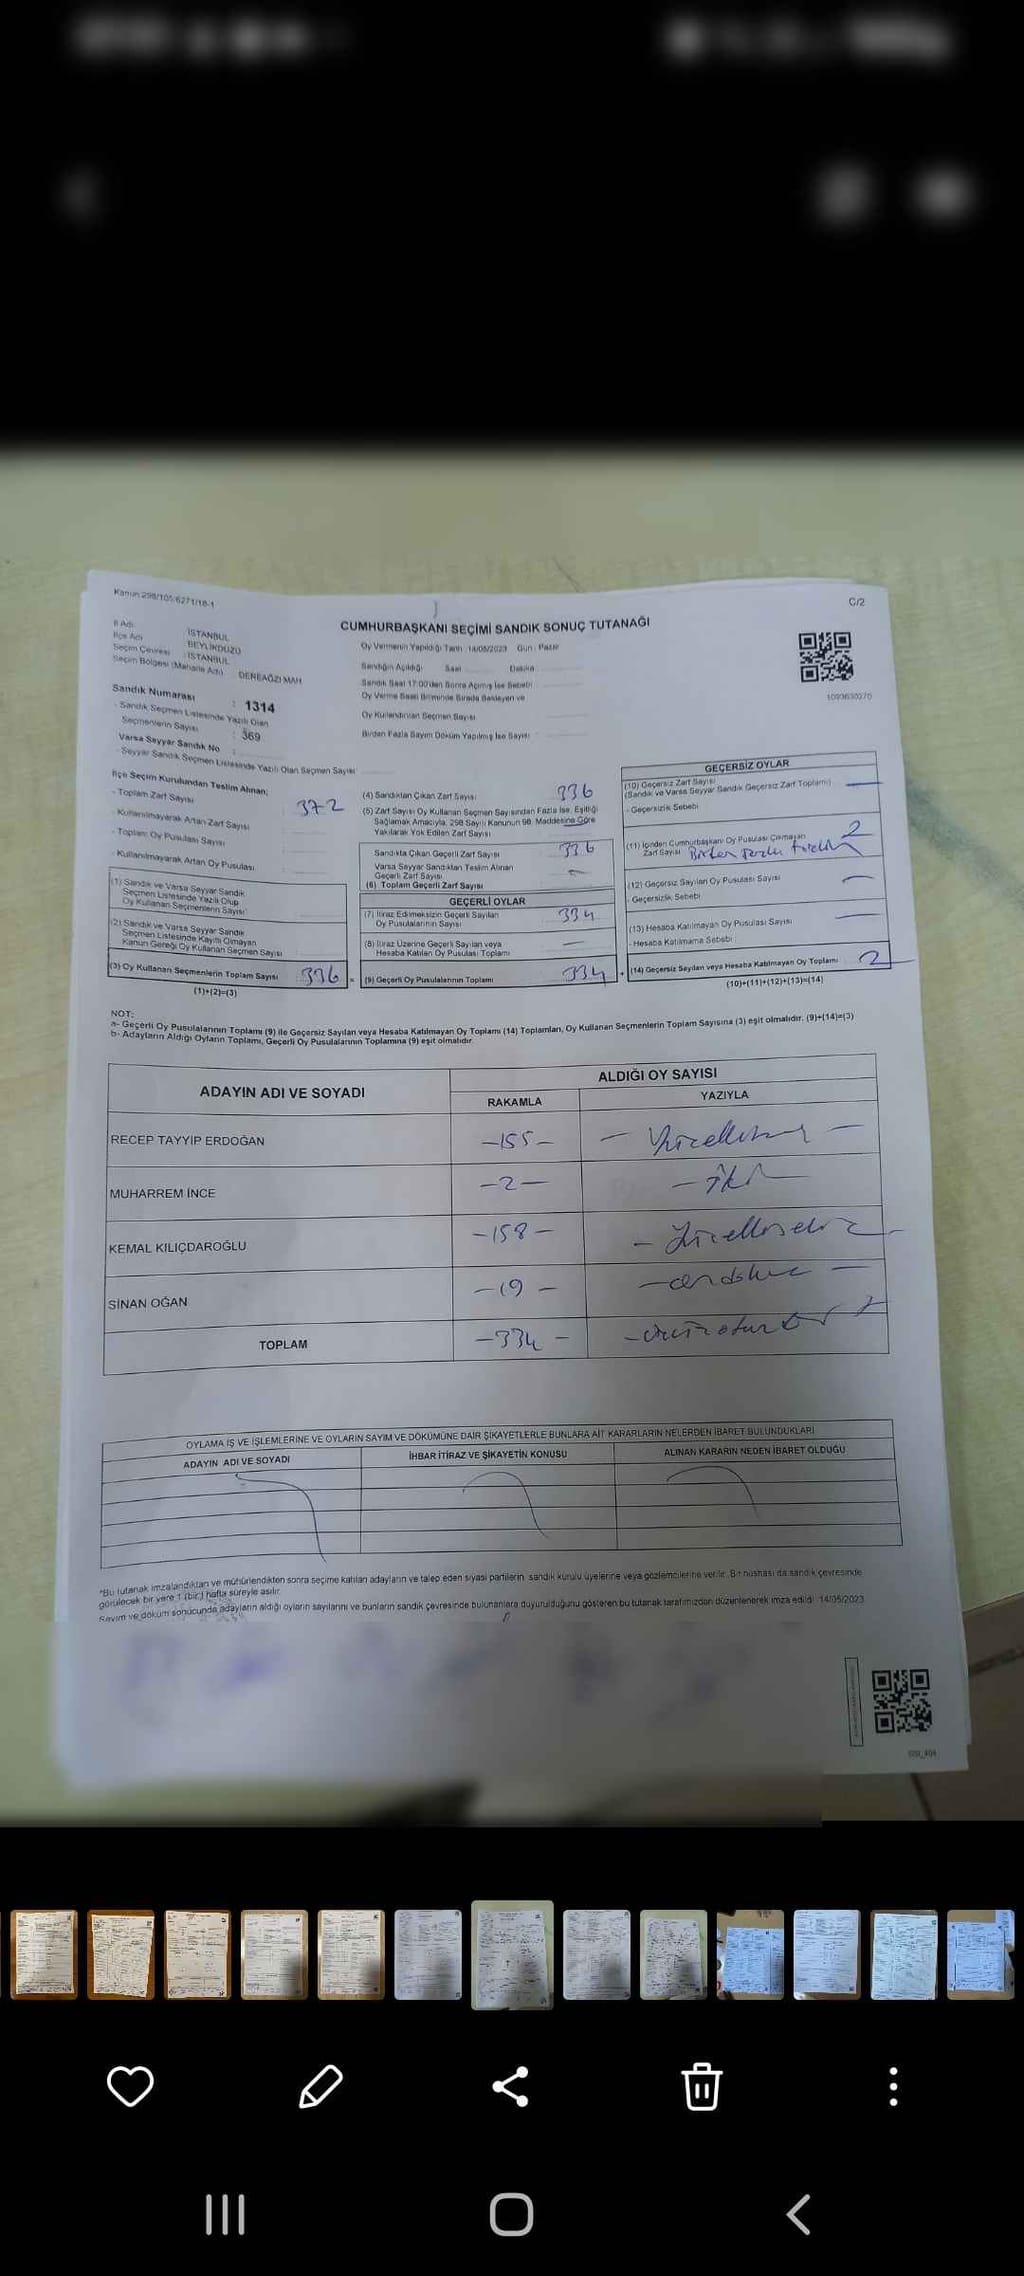 Kanun:298/105-6271/18-1
C/2
CUMHURBAŞKANI SEÇİMİ SANDIK SONUÇ TUTANAĞI
İl Adı : İSTANBUL
İlçe Adı : BEYLİKDÜZÜ
Seçim Çevresi : İSTANBUL
Seçim Bölgesi (Mahalle Adı) : DEREAĞZI MAH
Sandık Numarası : 1314
- Sandık Seçmen Listesinde Yazılı Olan
Seçmenlerin Sayısı : 369
Varsa Seyyar Sandık No :
- Seyyar Sandık Seçmen Listesinde Yazılı Olan Seçmen Sayısı
Oy Vermenin Yapıldığı Tarih : 14/05/2023 Gün : Pazar
Sandığın Açıldığı Saat Dakika
Sandık Saat 17:00'den Sonra Açılmış İse Sebebi
Oy Verme Saati Bitiminde Sırada Bekleyen ve
Oy Kullandırılan Seçmen Sayısı
Birden Fazla Sayım Döküm Yapılmış İse Sayısı :
1093630270
İlçe Seçim Kurulundan Teslim Alınan;
- Toplam Zarf Sayısı 372
- Kullanılmayarak Artan Zarf Sayısı
- Toplam Oy Pusulası Sayısı
- Kullanılmayarak Artan Oy Pusulası
(1) Sandık ve Varsa Seyyar Sandık
Seçmen Listesinde Yazılı Olup
Oy Kullanan Seçmenlerin Sayısı
(2) Sandık ve Varsa Seyyar Sandık
Seçmen Listesinde Kayıtlı Olmayan
Kanun Gereği Oy Kullanan Seçmen Sayısı
(3) Oy Kullanan Seçmenlerin Toplam Sayısı 336 =
(1)+(2)=(3)
(4) Sandıktan Çıkan Zarf Sayısı 336
(5) Zarf Sayısı Oy Kullanan Seçmen Sayısından Fazla İse, Eşitliği
Sağlamak Amacıyla, 298 Sayılı Kanunun 98. Maddesine Göre
Yakılarak Yok Edilen Zarf Sayısı
Sandıkta Çıkan Geçerli Zarf Sayısı 336
Varsa Seyyar Sandıktan Teslim Alınan
Geçerli Zarf Sayısı
(6) Toplam Geçerli Zarf Sayısı
GEÇERLİ OYLAR
(7) İtiraz Edilmeksizin Geçerli Sayılan
Oy Pusulalarının Sayısı 334
(8) İtiraz Üzerine Geçerli Sayılan veya
Hesaba Katılan Oy Pusulası Toplamı —
(9) Geçerli Oy Pusulalarının Toplamı 334 +
GEÇERSİZ OYLAR
(10) Geçersiz Zarf Sayısı
(Sandık ve Varsa Seyyar Sandık Geçersiz Zarf Toplamı) —
- Geçersizlik Sebebi
(11) İçinden Cumhurbaşkanı Oy Pusulası Çıkmayan 2
Zarf Sayısı
(12) Geçersiz Sayılan Oy Pusulası Sayısı —
- Geçersizlik Sebebi
(13) Hesaba Katılmayan Oy Pusulası Sayısı —
- Hesaba Katılmama Sebebi :
(14) Geçersiz Sayılan veya Hesaba Katılmayan Oy Toplamı 2
(10)+(11)+(12)+(13)=(14)
NOT:
a- Geçerli Oy Pusulalarının Toplamı (9) ile Geçersiz Sayılan veya Hesaba Katılmayan Oy Toplamı (14) Toplamları, Oy Kullanan Seçmenlerin Toplam Sayısına (3) eşit olmalıdır. (9)+(14)=(3)
b- Adayların Aldığı Oyların Toplamı, Geçerli Oy Pusulalarının Toplamına (9) eşit olmalıdır.
ADAYIN ADI VE SOYADI ALDIĞI OY SAYISI
RAKAMLA YAZIYLA
RECEP TAYYİP ERDOĞAN –155–
MUHARREM İNCE –2– – iki
KEMAL KILIÇDAROĞLU –158– – yüzellisekiz
SİNAN OĞAN –19– – ondokuz –
TOPLAM –334–
OYLAMA İŞ VE İŞLEMLERİNE VE OYLARIN SAYIM VE DÖKÜMÜNE DAİR ŞİKAYETLERLE BUNLARA AİT KARARLARIN NELERDEN İBARET BULUNDUKLARI
ADAYIN ADI VE SOYADI İHBAR İTİRAZ VE ŞİKAYETİN KONUSU ALINAN KARARIN NEDEN İBARET OLDUĞU
*Bu tutanak imzalandıktan ve mühürlendikten sonra seçime katılan adayların ve talep eden siyasi partilerin, sandık kurulu üyelerine veya gözlemcilerine verilir. Bir nüshası da sandık çevresinde
görülecek bir yere 1 (bir) hafta süreyle asılır.
Sayım ve döküm sonucunda adayların aldığı oyların sayılarını ve bunların sandık çevresinde bulunanlara duyurulduğunu gösteren bu tutanak tarafımızdan düzenlenerek imza edildi. 14/05/2023